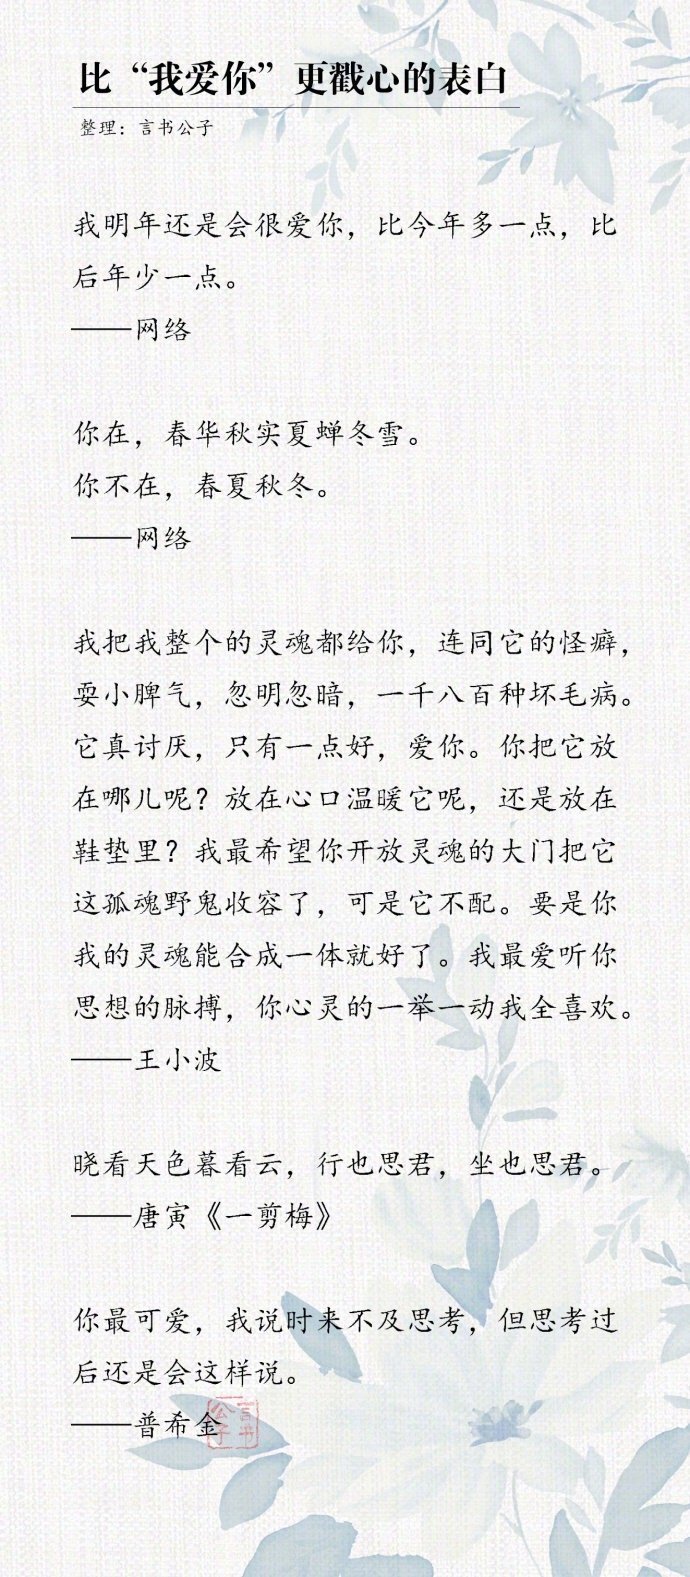 比“我爱你”更戳心的表白
整理：言书公子
我明年还是会很爱你，比今年多一点，比
后年少一点。
——网络
你在，春华秋实夏蝉冬雪。
你不在，春夏秋冬。
——网络
我把我整个的灵魂都给你，连同它的怪癖，
耍小脾气，忽明忽暗，一千八百种坏毛病。
它真讨厌，只有一点好，爱你。你把它放
在哪儿呢？放在心口温暖它呢，还是放在
鞋垫里？我最希望你开放灵魂的大门把它
这孤魂野鬼收容了，可是它不配。要是你
我的灵魂能合成一体就好了。我最爱听你
思想的脉搏，你心灵的一举一动我全喜欢。
——王小波
晓看天色暮看云，行也思君，坐也思君。
——唐寅《一剪梅》
你最可爱，我说时来不及思考，但思考过
后还是会这样说。
——普希金
言书
公子